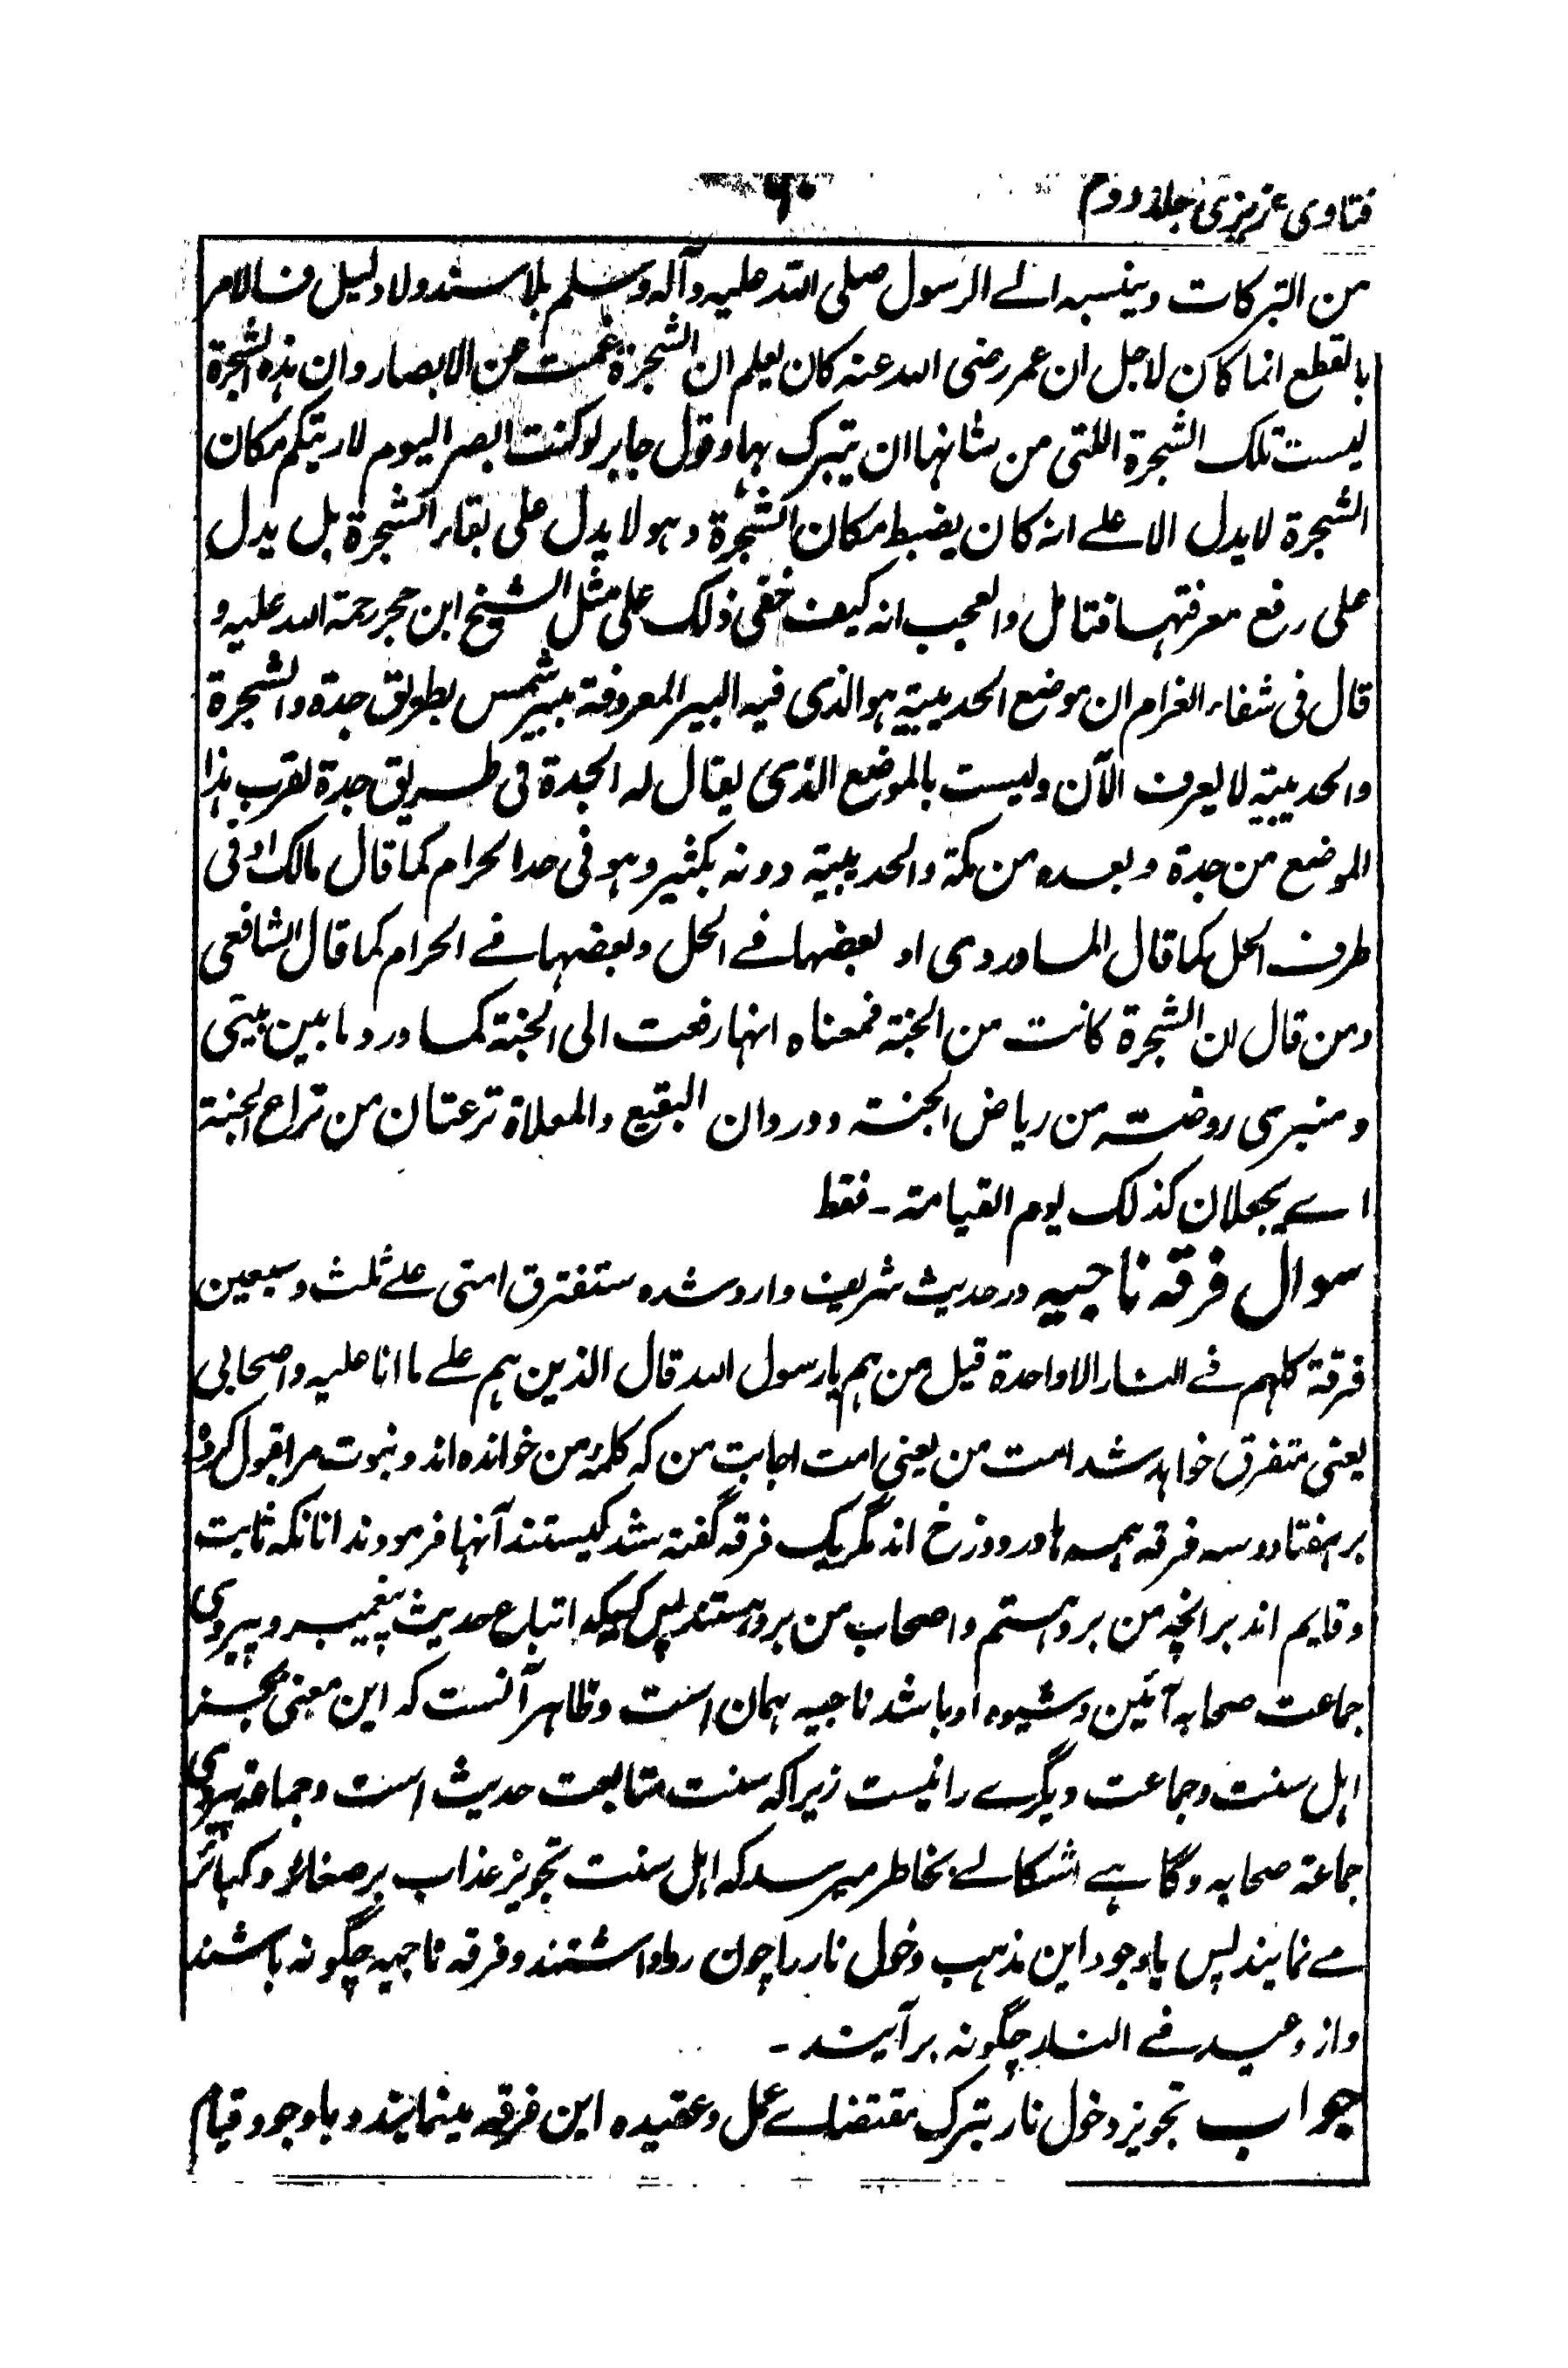 فتاوی عزیزی جلد دوم
من التبرکات وینسبہ الے الرسول صلی اللہ علیہ وآلہ وسلم بلا سند ولا دلیل فالامر
بالقطع انما کان لاجل ان عمر رضی اللہ عنہ کان یعلم ان الشجرۃ غمت عن الابصار وان ہذہ الشجرۃ
لیست تلک الشجرۃ اللتی من شانہا ان یتبرک بہا وقول جابر لو کنت ابصر الیوم لاریتکم مکان
الشجرۃ لا یدل الا علے انہ کان یضبط مکان الشجرۃ وہو لا یدل علی بقاء الشجرۃ بل یدل
علی رفع معرفتہا فتامل والعجب انہ کیف خفی ذلک علی مثل الشیخ ابن حجر رحمۃ اللہ علیہ و
قال فی شفاء الغرام ان موضع الحدیبیۃ ہو الذی فیہ البیر المعروفۃ ببیر شمس بطریق جدۃ والشجرۃ
والحدیبیۃ لا یعرف الآن ولیست بالموضع الذی یقال لہ الجدۃ فی طریق جدۃ لقرب ہذا
الموضع من جدۃ وبعدہ من مکۃ والحدیبیۃ دونہ بکثیر وہو فی حد الحرام کما قال مالک او فی
طرف الحل کما قال الماوردی او بعضہا فے الحل وبعضہا فے الحرام کما قال الشافعی
ومن قال ان الشجرۃ کانت من الجنۃ فمعناہ انہا رفعت الی الجنۃ کما ورد ما بین بیتی
ومنبری روضتہ من ریاض الجنتہ وورد ان البقیع والمعلاۃ ترعتان من تراع الجنۃ
اے یجعلان کذلک یوم القیامۃ ۔ فقط
سوال فرقہ ناجیہ در حدیث شریف وارد شدہ ستفترق امتی علے ثلث وسبعین
فرقۃ کلہم فے النار الا واحدۃ قیل من ہم یا رسول اللہ قال الذین ہم علے ما انا علیہ واصحابی
یعنی متفرق خواہد شد امت من یعنی امت اجابت من کہ کلمۂ من خواندہ اند ونبوت مرا قبول کردہ
بر ہفتاد وسہ فرقہ ہمہ ہا در دوزخ اند مگر یک فرقہ گفتہ شد کیستند آنہا فرمودند انانکہ ثابت
وقایم اند بر انچہ من بر وہستم واصحاب من برو ہستند پس کسیکہ اتباع حدیث پیغمبر وپیروی
جماعت صحابہ آئین وشیوہ او باشد ناجیہ ہمان است وظاہر آنست کہ این معنی بجز
اہل سنت وجماعت دیگرے را نیست زیرا کہ سنت متابعت حدیث است وجماعۃ پیروی
جماعۃ صحابہ وگاہے اشکالے بخاطر میرسد کہ اہل سنت تجویز عذاب بر صغائر وکبائر
مے نمایند پس باوجود این مذہب دخول نار را چون روا داشتند وفرقہ ناجیہ چگونہ باشند
واز وعید فے النار چگونہ برآیند ۔
جواب تجویز دخول نار بترک مقتضاے عمل وعقیدہ این فرقہ مینمایند وباوجود قیام